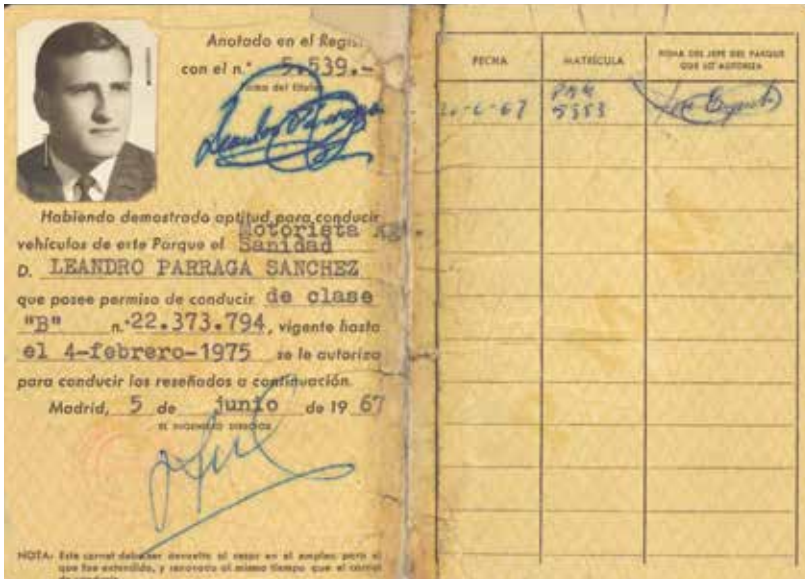 Anotado en el Regis
con el n.° 5.539.-
Firma del titular
Leandro Parraga
Habiendo demostrado aptitud para conducir
vehículos de este Parque el Motorista Agt.
Sanidad
D. LEANDRO PARRAGA SANCHEZ
que posee permiso de conducir de clase
"B" n.° 22.373.794, vigente hasta
el 4-febrero-1975 se le autoriza
para conducir los reseñados a continuación.
Madrid, 5 de junio de 19 67
EL INGENIERO DIRECTOR
NOTA: Este carnet debe ser devuelto al cesar en el empleo para el
que fue extendido, y renovado al mismo tiempo que el carnet
de conducir.
FECHA MATRÍCULA FIRMA DEL JEFE DEL PARQUE
QUE LO AUTORIZA
-6-67 PMM
5353